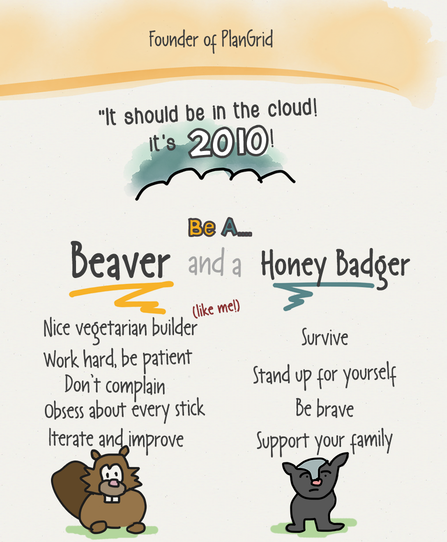 Founder of PlanGrid
"It should be in the cloud!
it's 2010!
Be A...
Beaver and a Honey Badger
(like me!)
Nice vegetarian builder
Work hard, be patient
Don't complain
Obsess about every stick
Iterate and improve
Survive
Stand up for yourself
Be brave
Support your family